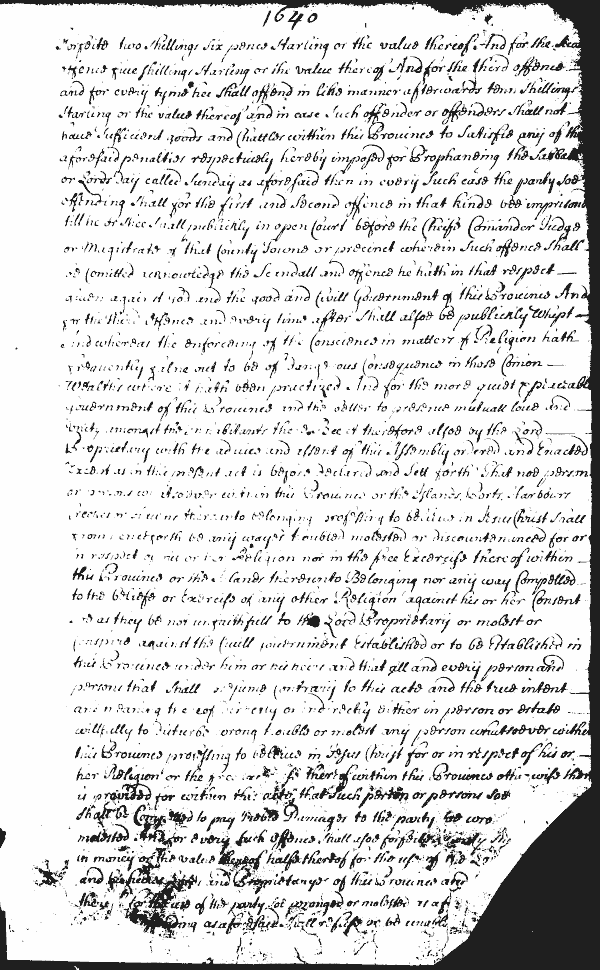 1640
forfeite two shillings six pence starling or the value thereof And for the
offence five shillings starling or the value thereof And for the third offence
and for every tyme hee shall offend in like manner afterwards tenn shillings
starling or the value thereof and in case such offender or offenders shall not
have sufficient goods and Chattles within this Province to satisfie any of the
aforesaid penalties respectively hereby imposed for Prophaneing the Sabbath
or Lords day called Sunday as aforesaid then in every such case the party soe
offending shall for the first and second offence in that kinde bee imprisoned
till he or shee shall publickly in open Court before the Cheife Comander Judge
or Magistrate of that County Towne or precinct wherein such offence shall
be Comitted acknowledge the Scandall and offence he hath in that respect
given against god and the good and Civill Government of this Province And
for the third offence and every time after shall alsoe be publickly whipt
And whereas the enforceing of the Conscience in matters of Religion hath
frequently falne out to be of dangerous Consequence in those Comon
Wealths where it hath been practized And for the more quiet & peaceable
government of this Province and the better to preserve mutuall love and
unity amongst the inhabitants there Bee it therefore alsoe by the Lord
Proprietary with the advice and assent of this Assembly ordered and Enacted
Except as in this present act is before declared and sett forth that noe person
or persons whatsoever within this Province or the Islands Ports Harbours
Creekes or havens thereunto belonging professing to believe in Jesus Christ shall
from henceforth be any wayes troubled molested or discountenanced for or
in respect of his or her Religion nor in the free Exercise thereof within
this Province or the Islands thereunto Belonging nor any way Compelled
to the beliefe or Exercise of any other Religion against his or her Consent
soe as they be not unfaithfull to the Lord Proprietary or molest or
Conspire against the Civill government Established or to be Established in
this Province under him or his heires and that all and every person and
persons that shall presume Contrary to this acte and the true intent
and meaning thereof directly or indirectly either in person or estate
willfully to disturbe wrong trouble or molest any person whatsoever within
this Province professing to believe in Jesus Christ for or in respect of his or
her Religion or the free exercise thereof within this Province otherwise then
is provided for within this acte that such person or persons soe
shall be Compelled to pay treble Damages to the party soe wro
molested And for every such offence shall alsoe forfeite
in money or the value thereof halfe thereof for the use of the Lo
and his heires and Proprietarys of this Province and
the for the use of the party soe wronged or molested as af
offending as aforesaid shall refuse or be unable